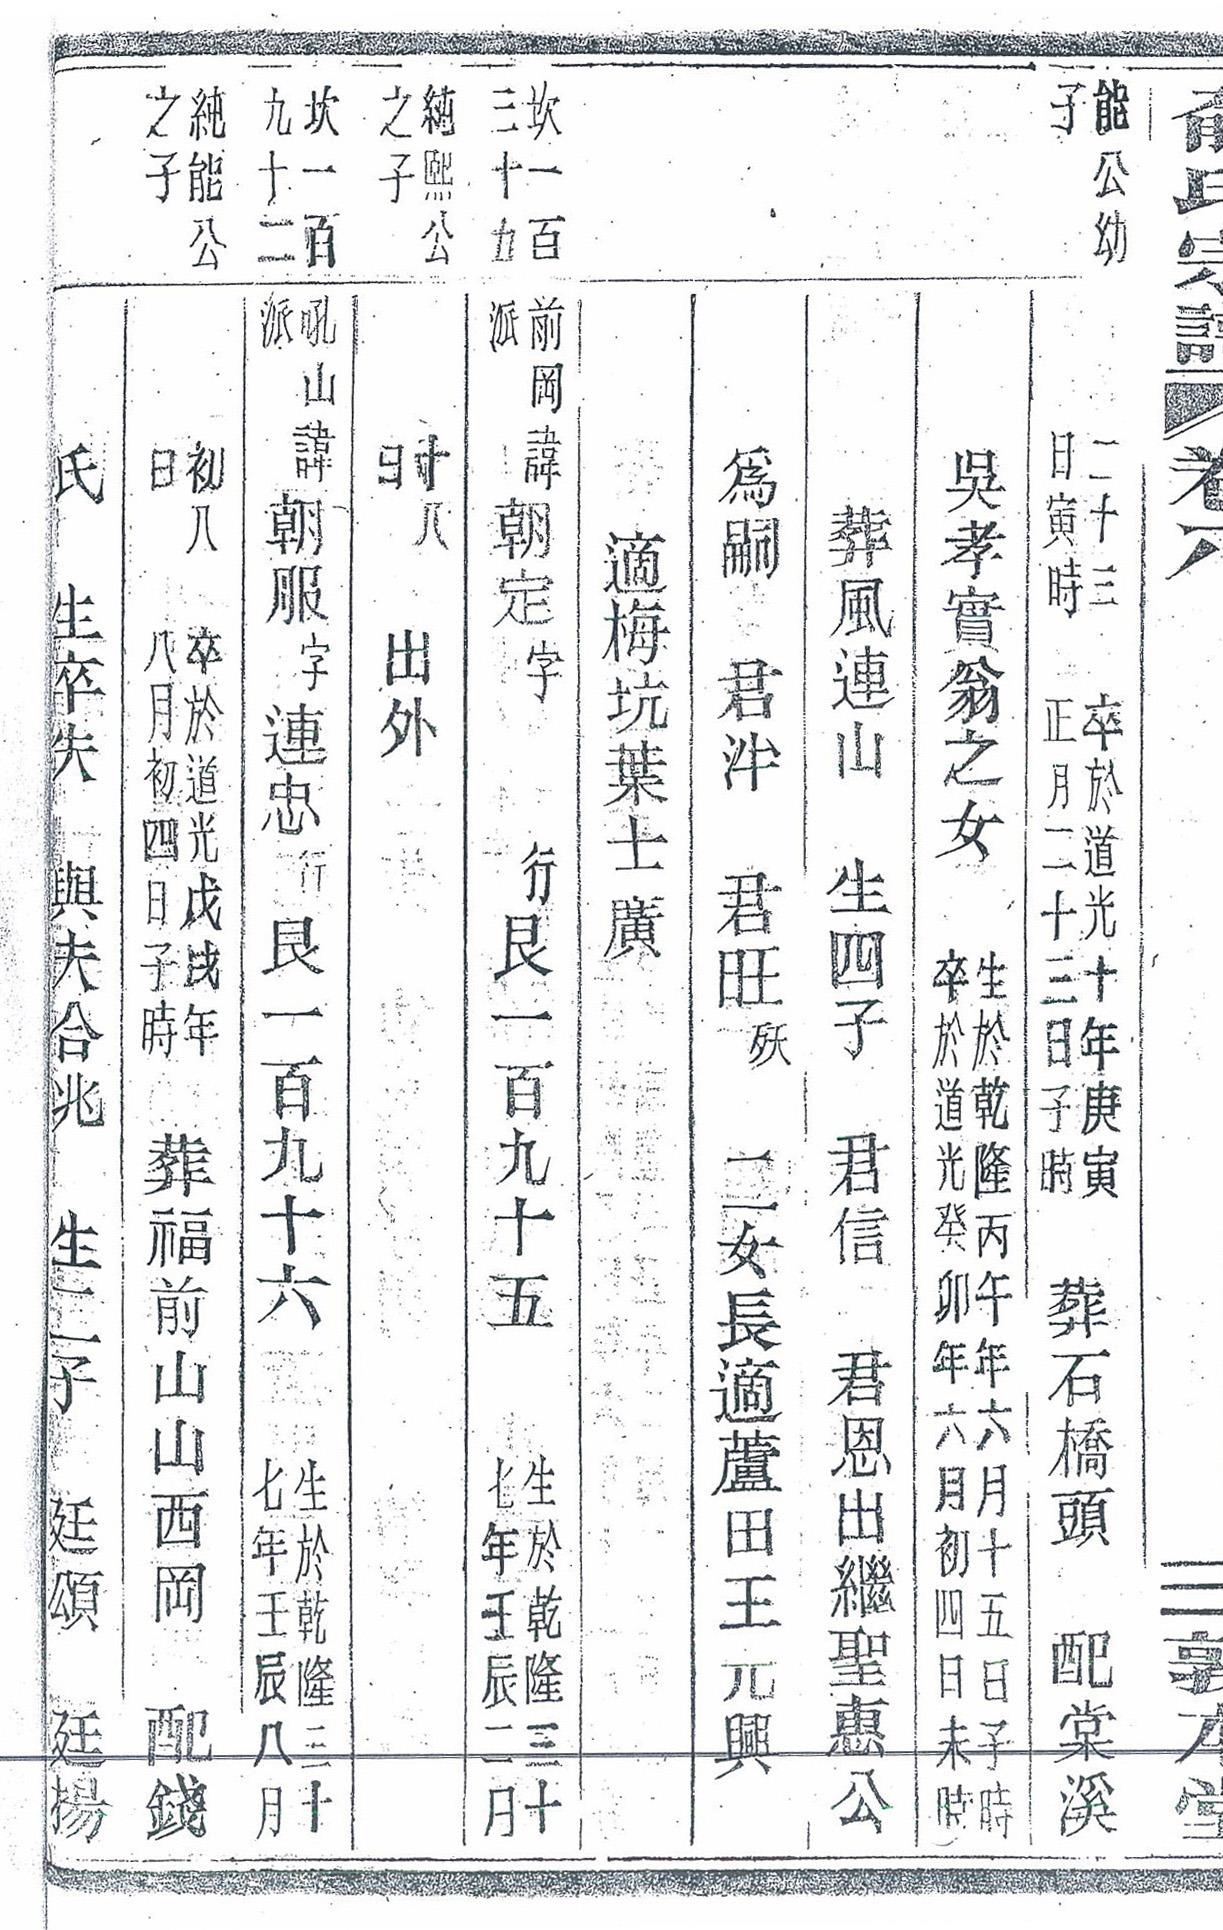 俞氏宗譜 卷六 三 敦本堂
能公幼
子
二十三
日寅時
卒於道光十年庚寅
正月二十三日子時
葬石橋頭 配棠溪
吳孝實翁之女
生於乾隆丙午年六月十五日子時
卒於道光癸卯年六月初四日未時
葬風連山 生四子 君信 君恩出繼聖惠公
為嗣 君泮 君旺殀 二女長適蘆田王元興
適梅坑葉士廣
坎一百
三十九
前岡諱朝定字 行艮一百九十五
派
生於乾隆三十
七年壬辰二月
純熙公
之子
十八
日
出外
坎一百
九十二
吼山諱朝服字連忠行艮一百九十六
派
生於乾隆三十
七年壬辰八月
純能公
之子
初八
日
卒於道光戊戌年
八月初四日子時
葬福前山山西岡 配錢
氏 生卒失 與夫合兆 生二子 廷頌 廷揚